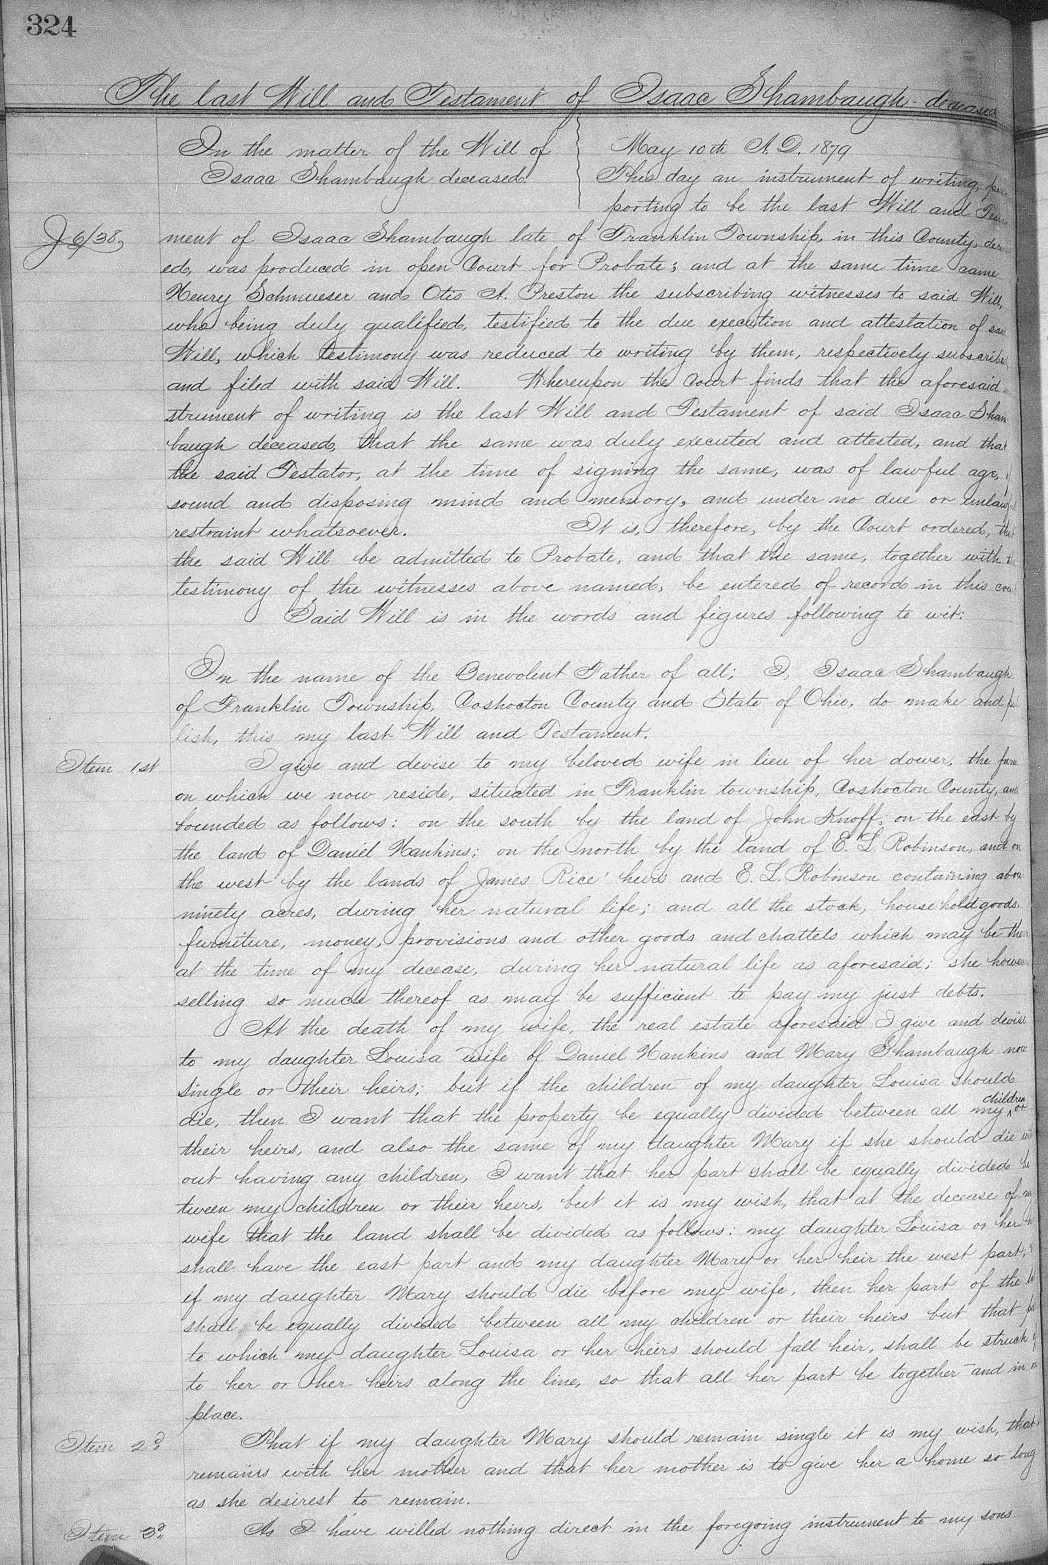 324
The last Will and Testament of Isaac Shambaugh deceased
In the matter of the Will of
Isaac Shambaugh deceased
May 10th A.D. 1879
This day an instrument of writing, pur
porting to be the last Will and Testa
J 6/38,
ment of Isaac Shambaugh late of Franklin Township, in this County, dec
ed, was produced in open Court for Probate; and at the same time came
Henry Schmueser and Otis A. Preston the subscribing witnesses to said Will,
who being duly qualified, testified to the due execution and attestation of said
Will, which testimony was reduced to writing by them, respectively subscribed
and filed with said Will. Whereupon the Court finds that the aforesaid
strument of writing is the last Will and Testament of said Isaac Sham
baugh deceased, that the same was duly executed and attested, and that
the said Testator, at the time of signing the same, was of lawful age,
sound and disposing mind and memory, and under no due or unlawful
restraint whatsoever. It is, therefore, by the Court ordered, that
the said Will be admitted to Probate, and that the same, together with
testimony of the witnesses above named, be entered of record in this cou
Said Will is in the words and figures following to wit:
In the name of the Benevolent Father of all; I, Isaac Shambaugh
of Franklin Township, Coshocton County and State of Ohio, do make and pub
lish, this my last Will and Testament.
Item 1st
I give and devise to my beloved wife in lieu of her dower, the farm
on which we now reside, situated in Franklin township, Coshocton County, and
bounded as follows: on the south by the land of John Knoff; on the east by
the land of Daniel Hankins; on the north by the land of E. L. Robinson, and on
the west by the lands of James Rice' heirs and E. L. Robinson containing about
ninety acres, during her natural life; and all the stock, household goods,
furniture, money, provisions and other goods and chattels which may be there
at the time of my decease, during her natural life as aforesaid; she however
selling so much thereof as may be sufficient to pay my just debts.
At the death of my wife, the real estate aforesaid I give and devise
to my daughter Louisa wife of Daniel Hankins and Mary Shambaugh now
single or their heirs; but if the children of my daughter Louisa should
die, then I want that the property be equally divided between all my children or
their heirs, and also the same of my daughter Mary if she should die with
out having any children, I want that her part shall be equally divided be
tween my children or their heirs, but it is my wish, that at the decease of my
wife that the land shall be divided as follows: my daughter Louisa or her
shall have the east part and my daughter Mary or her heir the west part,
if my daughter Mary should die before my wife, then her part of the
shall be equally divided between all my children or their heirs but that
to which my daughter Louisa or her heirs should fall heir, shall be struck
to her or her heirs along the line, so that all her part be together and in
place.
Item 2d
That if my daughter Mary should remain single it is my wish, that
remains with her mother and that her mother is to give her a home so long
as she desirest to remain.
Item 3d
As I have willed nothing direct in the foregoing instrument to my sons